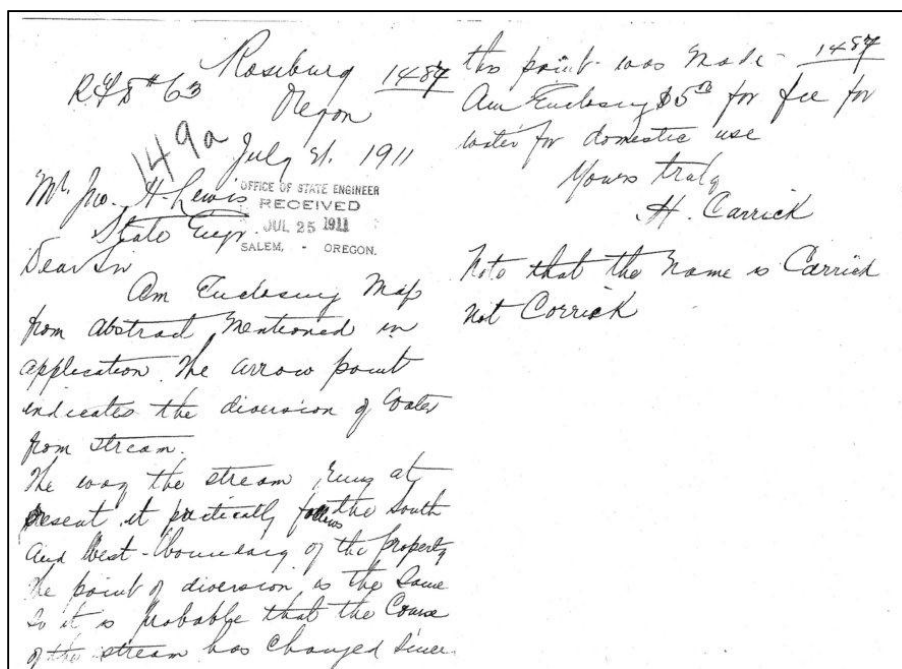 Roseburg 1487
Oregon
149a
July 21. 1911
Mr. Jno. H. Lewis
State Engr.
OFFICE OF STATE ENGINEER
RECEIVED
JUL 25 1911
SALEM, - OREGON.
Dear Sir
Am Enclosing Map
from abstract Mentioned in
application. The arrow point
indicates the diversion of Water
from stream.
The way the stream runs at
present it practically follows the South
and West boundary of the property
The point of diversion is the Same
So it is probable that the Course
of the stream has Changed Since
this point was Made - 1487
Am Enclosing $5.00 for fee for
water for domestic use
Yours truly
H. Carrick
Note that the Name is Carrick
not Corrick